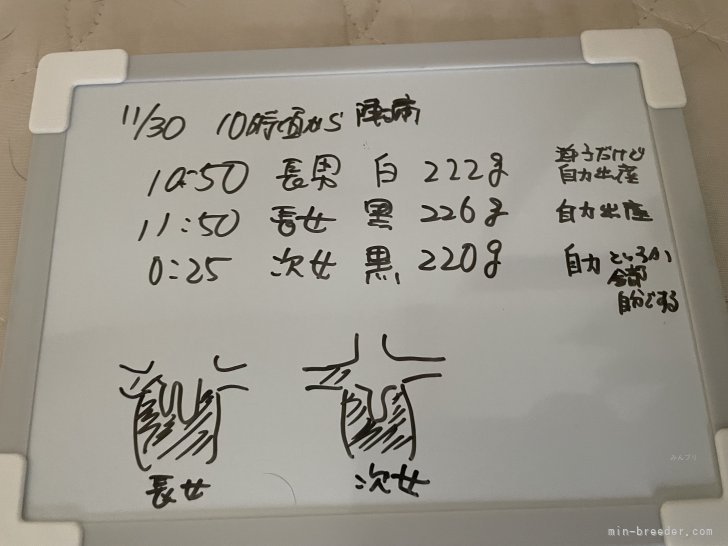 11/30 10時頃から 陣痛
10:50 長男 白 222g 逆子だけど
自力出産
11:50 長女 黒 226g 自力出産
0:25 次女 黒 220g 自力 というか
全部
自分でする
長女 次女
みんブリ
min-breeder.com